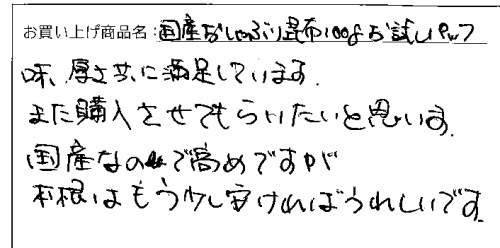 お買い上げ商品名：国産おしゃぶり昆布100gお試しパック
味、厚さ共に満足しています。
また購入させてもらいたいと思います。
国産なので高めですが
本根はもう少し安ければうれしいです。